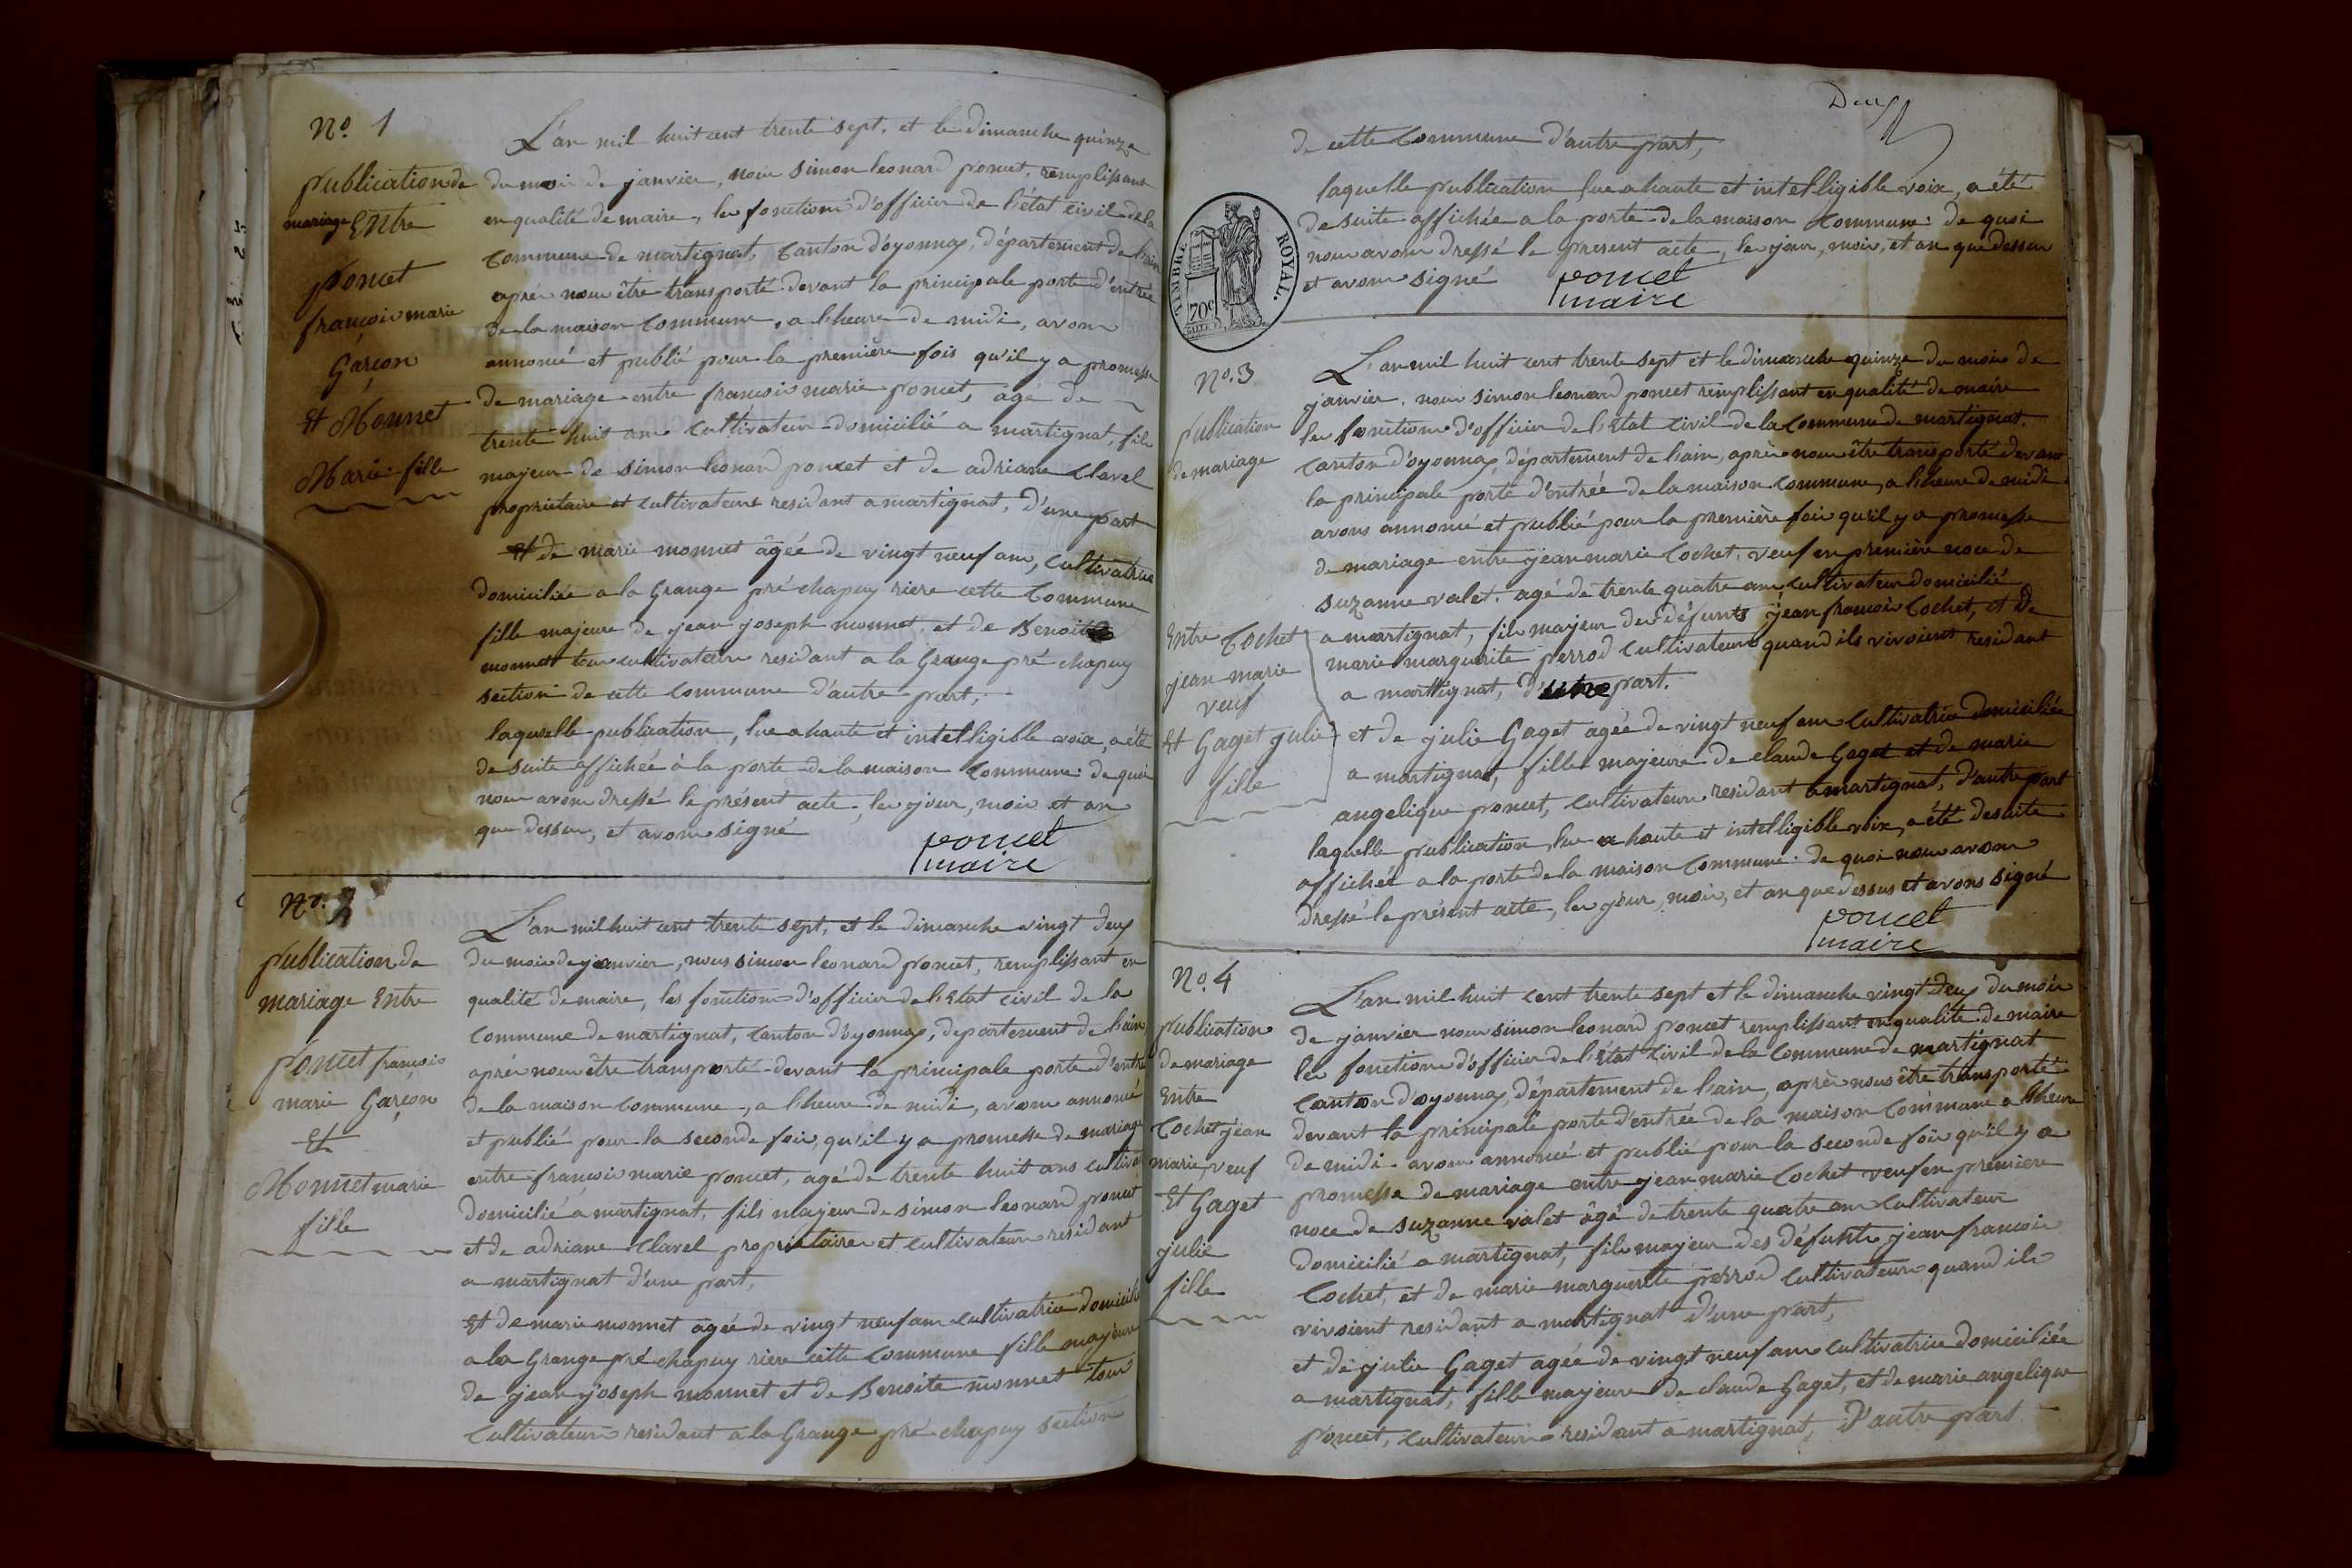 No. 1
Publication de
mariage Entre
Poncet
françois marie
Garçon
Et Monnet
Marie fille
L'an mil huit cent trente sept, et le dimanche quinze
du mois de janvier, nous simon leonard poncet, remplissant
en qualité de maire, les fonctions d'officier de l'état civil de la
Commune de martignat, Canton d'oyonnax, département de l'ain
après nous être transporté devant la principale porte d'entrée
de la maison Commune, a l'heure de midi, avons
annoncé et publié pour la première fois qu'il y a promesse
de mariage entre françois marie poncet, agé de
trente huit ans Cultivateur domicilié a martignat, fils
majeur de simon leonard poncet et de adriane Clavel
propriétaire et cultivateurs residant a martignat, d'une part
Et de marie monnet âgée de vingt neuf ans, Cultivatrice
domiciliée a la Grange pré chapuy riere cette Commune
fille majeure de jean joseph monnet, et de Benoite
monnet tous cultivateurs residant a la Grange pré chapuy
section de cette Commune d'autre part;
laquelle publication, lue a haute et intelligible voix, a été
de suite affichée à la porte de la maison Commune: de quoi
nous avons dressé le présent acte, les jour, mois et an
que dessus, et avons signé
poncet
maire
No. 2
Publication de
mariage Entre
Poncet françois
marie Garçon
Et
Monnet marie
fille
L'an mil huit cent trente sept, et le dimanche vingt deux
du mois de janvier, nous simon leonard poncet, remplissant en
qualité de maire, les fonctions d'officier de l'Etat civil de la
Commune de martignat, Canton d'oyonnax, département de l'ain
après nous être transporté devant la principale porte d'entré
de la maison Commune, a l'heure de midi, avons annoncé
et publié pour la seconde fois, qu'il y a promesse de mariage
entre françois marie poncet, agé de trente huit ans cultivat
domicilié a martignat, fils majeur de simon leonard poncet
et de adriane Clavel propriétaire et cultivateurs residant
a martignat d'une part,
Et de marie monnet agée de vingt neuf ans cultivatrice domicilié
a la Grange pré chapuy riere cette Commune fille majeure
de jean joseph monnet et de Benoite monnet tous
Cultivateurs residant a la Grange pré chapuy section
Deux
de cette Commune d'autre part,
laquelle publication lue a haute et intelligible voix, a été
de suite affichée a la porte de la maison Commune: de quoi
nous avons dressé le present acte, les jour, mois, et an que dessus
et avons signé
poncet
maire
TIMBRE ROYAL.
70c
No. 3
Publication
de mariage
Entre Cochet
jean marie
veuf
Et Gaget julie
fille
L'an mil huit cent trente sept et le dimanche quinze du mois de
janvier, nous simon leonard poncet remplissant en qualité de maire
les fonctions d'officier de l'Etat civil de la Commune de martignat.
Canton d'oyonnax, département de l'ain, après nous être transporté devant
la principale porte d'entrée de la maison Commune, a l'heure de midi
avons annoncé et publié pour la première fois qu'il y a promesse
de mariage entre jean marie Cochet, veuf en première noce de
suzanne valet. agé de trente quatre ans, Cultivateur domicilié
a martignat, fils majeur des défunts jean françois Cochet, et de
marie marguerite perrod Cultivateurs quand ils vivoient residant
a marttignat, d'une part.
et de julie Gaget agée de vingt neuf ans Cultivatrice domiciliée
a martignat, fille majeure de claude Gaget et de marie
angelique poncet, cultivateurs residant a martignat, d'autre part
laquelle publication lue a haute et intelligible voix, a été de suite
affichée a la porte de la maison Commune: de quoi nous avons
dressé le présent acte, les jour, mois, et an que dessus et avons signé
poncet
maire
No. 4
Publication
de mariage
Entre
Cochet jean
marie, veuf
Et Gaget
julie
fille
L'an mil huit cent trente sept et le dimanche vingt deux du mois
de janvier nous simon leonard poncet remplissant en qualité de maire
les fonctions d'officier de l'Etat Civil de la Commune de martignat
Canton d'oyonnax, département de l'ain, après nous être transporté
devant la principale porte d'entrée de la maison Commune a l'heure
de midi. avons annoncé et publié pour la seconde fois qu'il y a
promesse de mariage entre jean marie Cochet veuf en premiere
noce de suzanne valet âgé de trente quatre ans Cultivateur
domicilié a martignat, fils majeur des défunts jean francois
Cochet, et de marie marguerite perrod Cultivateurs quand ils
vivoient residant a martignat d'une part,
et de julie Gaget agée de vingt neuf ans cultivatrice domiciliée
a martignat, fille majeure de claude Gaget, et de marie angelique
Poncet, Cultivateurs residant a martignat, d'autre part